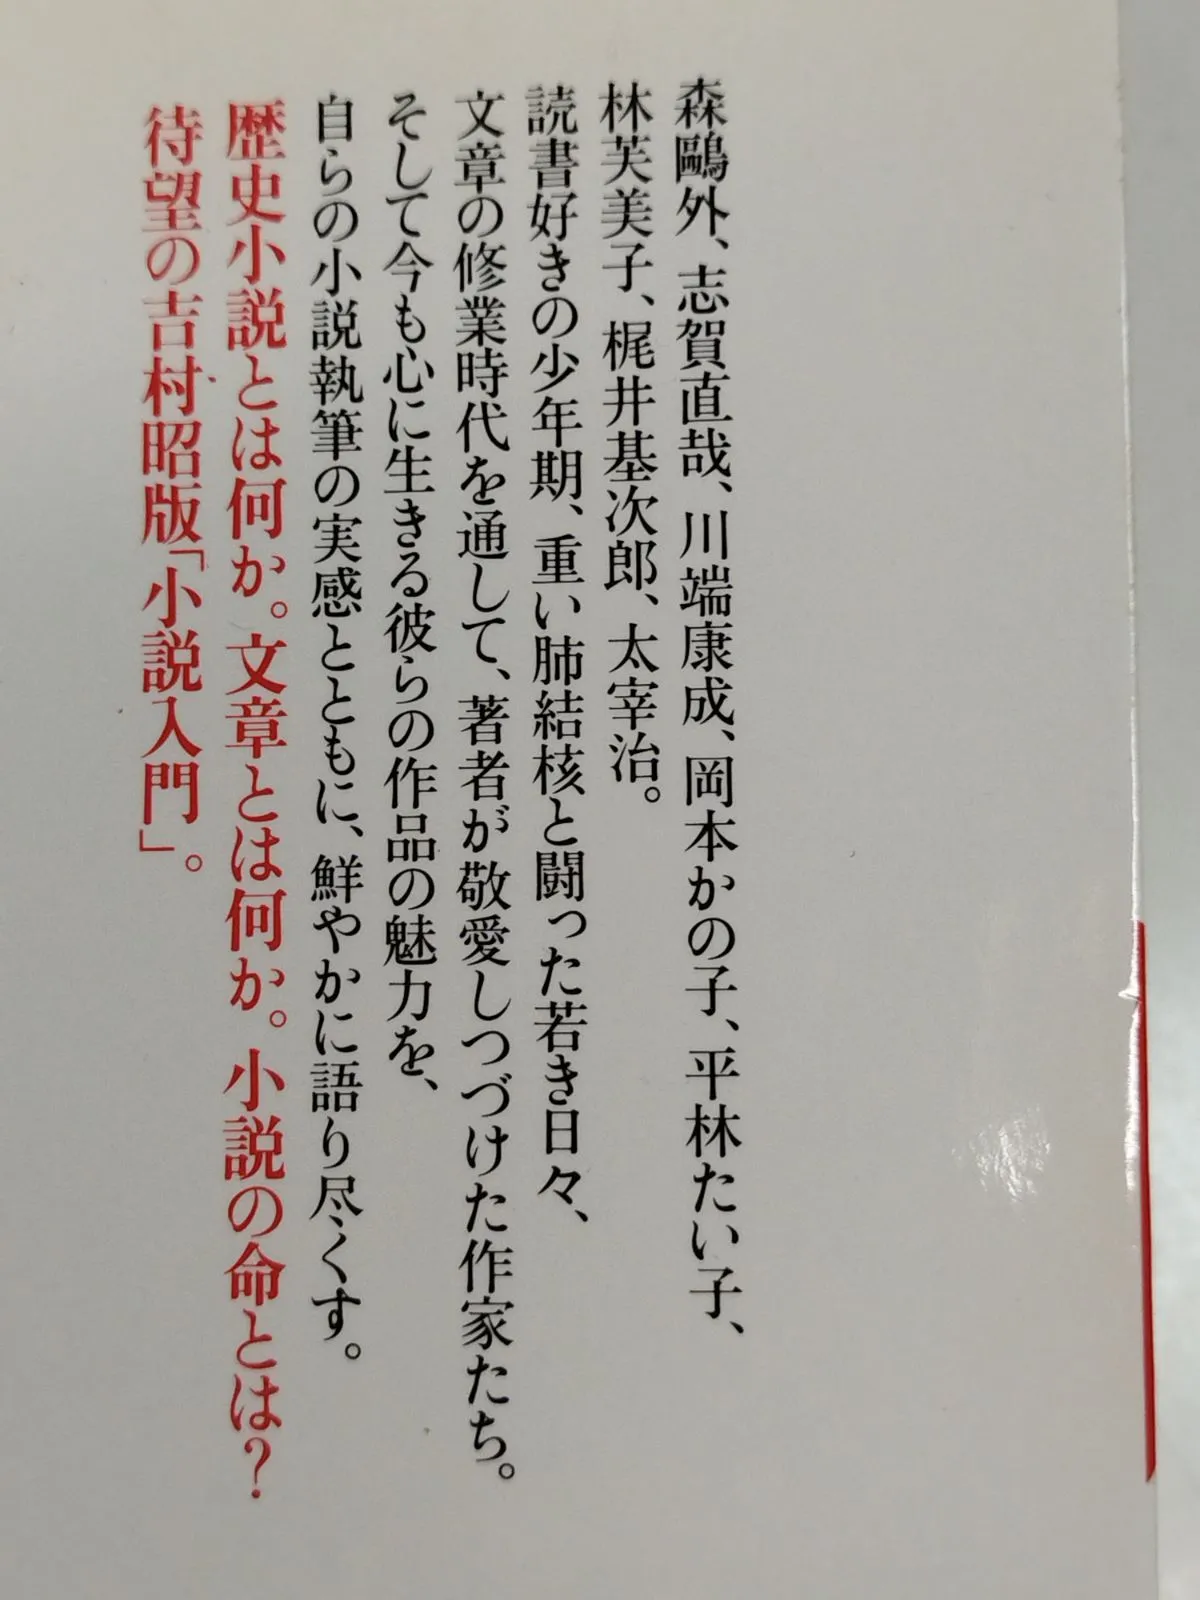 森鷗外、志賀直哉、川端康成、岡本かの子、平林たい子、
林芙美子、梶井基次郎、太宰治。
読書好きの少年期、重い肺結核と闘った若き日々、
文章の修業時代を通して、著者が敬愛しつづけた作家たち。
そして今も心に生きる彼らの作品の魅力を、
自らの小説執筆の実感とともに、鮮やかに語り尽くす。
歴史小説とは何か。文章とは何か。小説の命とは?
待望の吉村昭版「小説入門」。